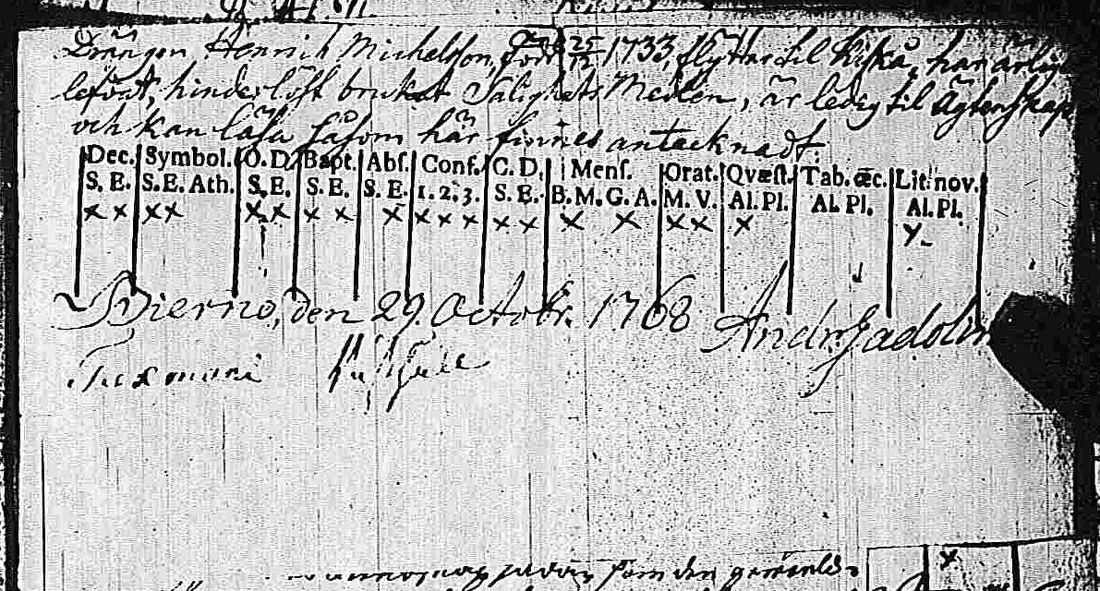 Drängen Henrich Michelsson, född 25/12 1733, flyttar til Kiskå, har ärligen
lefvat, hinderlöst brukat Salighets Medlen, är ledig til Ägtenskap
och kan läsa såsom här finnes antecknadt.
Dec. Symbol. O. D. Bapt. Abs. Conf. C. D. Mens. Orat. Qvæst. Tab. œc. Lit. nov.
S. E. S. E. Ath. S. E. S. E. S. E. 1. 2. 3. S. E. B. M. G. A. M. V. Al. Pl. Al. Pl. Al. Pl.
x x x x x x x x x x x x x x x x x x x x
Bierno, den 29. Octobr. 1768 Andr. Gadolin